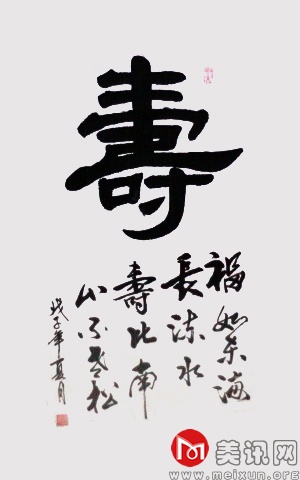 壽
福如东海
長流水
壽比南
山不老松
戊子年夏月
美讯网
www.meixun.org